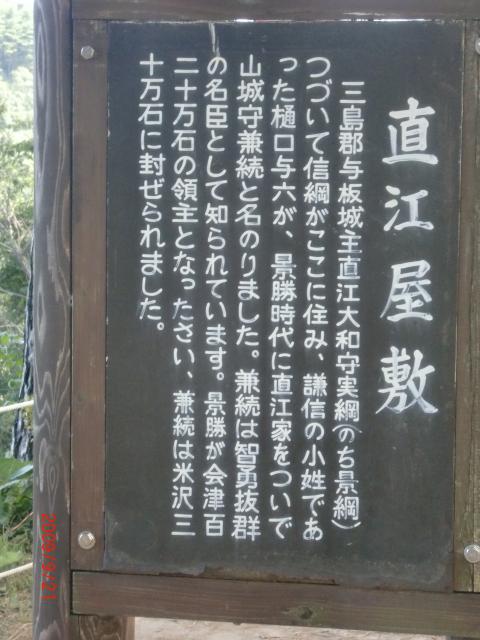 直江屋敷
三島郡与板城主直江大和守実綱(のち景綱)
つづいて信綱がここに住み、謙信の小姓であ
った樋口与六が、景勝時代に直江家をついで
山城守兼続と名のりました。兼続は智勇抜群
の名臣として知られています。景勝が会津百
二十万石の領主となったさい、兼続は米沢三
十万石に封ぜられました。
2009/9/21